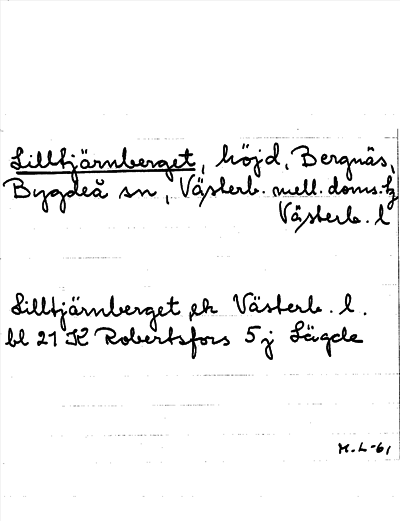 Lilltjärnberget, höjd, Bergnäs,
Bygdeå sn, Västerb. mell. doms. tg
Västerb. l
Lilltjärnberget ek Västerb. l.
bl 21 K Robertsfors 5 j Lägde
M. L-61